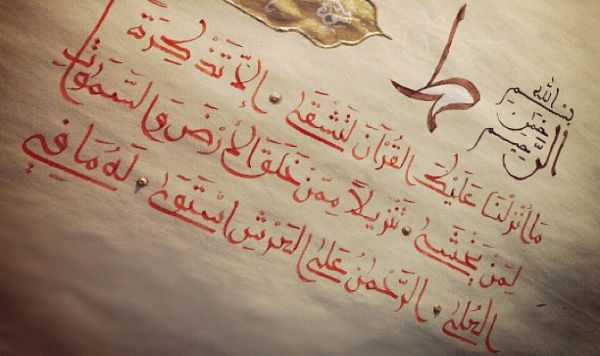 بسم الله
الرحمن
الرحيم
طه
مَا أَنْزَلْنَا عَلَيْكَ الْقُرْآنَ لِتَشْقَىٰ إِلَّا تَذْكِرَةً
لِمَنْ يَخْشَىٰ تَنْزِيلًا مِمَّنْ خَلَقَ الْأَرْضَ وَالسَّمَوَاتِ
الْعُلَىٰ الرَّحْمَٰنُ عَلَى الْعَرْشِ اسْتَوَىٰ لَهُ مَا فِي